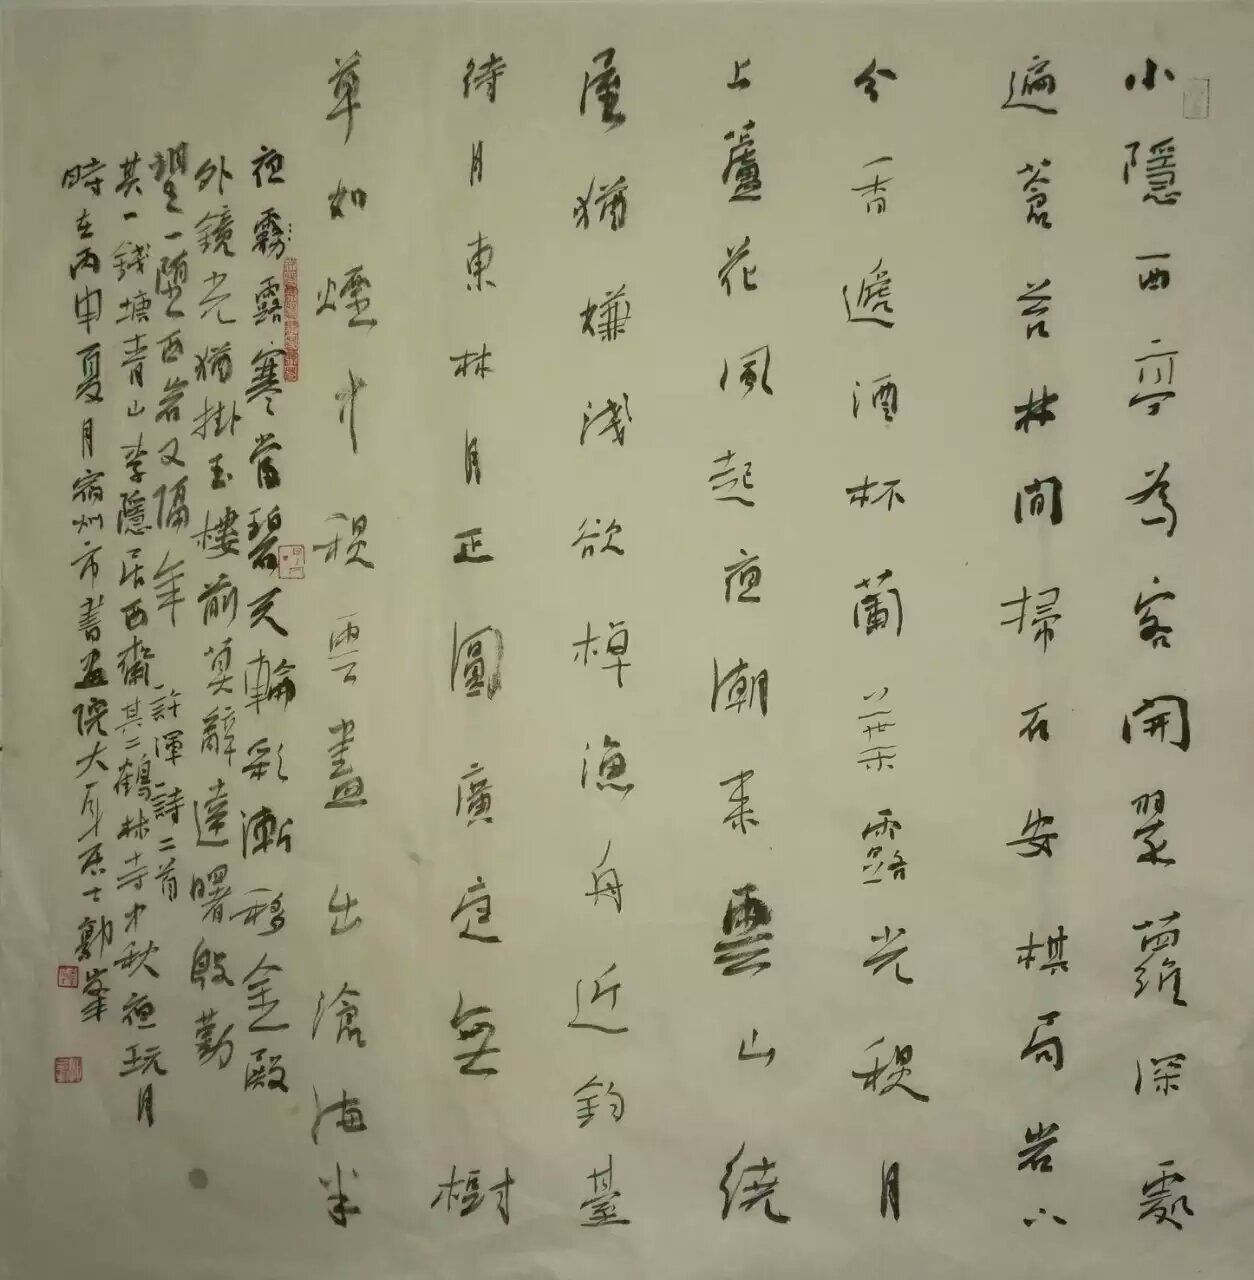 小隱西亭為客開翠蘿深處
遍蒼苔林間掃石安棋局岩下
分香遞酒杯蘭葉露光秋月
上蘆花風起夜潮來雲山繞
屋猶嫌淺欲棹漁舟近釣臺
待月東林月正圓廣庭無樹
草如煙中秋雲盡出滄海半
夜霧露寒當碧天輪彩漸移金殿
外鏡光猶掛玉樓前莫辭達曙殷勤
望一墮西岩又隔年 許渾詩二首
其一錢塘青山李隱居西齋其二鶴林寺中秋夜玩月
時在丙申夏月宿州市書畫院大耳居士勛峯